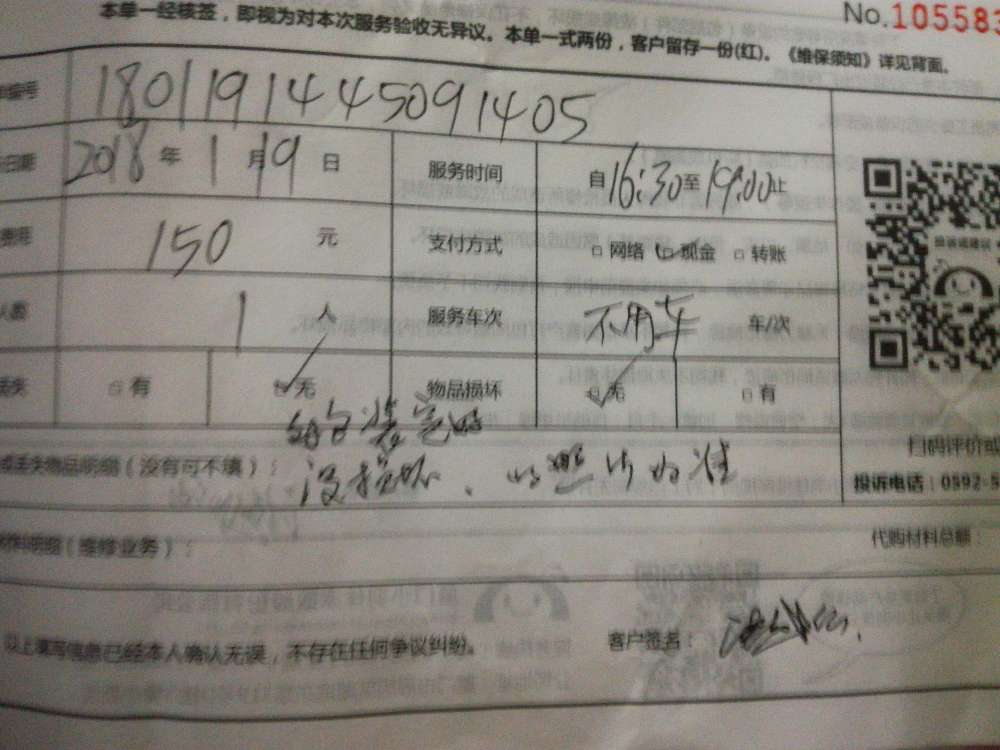 No.105583
本单一经核签，即视为对本次服务验收无异议。本单一式两份，客户留存一份(红)。《维保须知》详见背面。
编号 18011914445091405
日期 2018年1月19日 服务时间 自16:30至19:00止
费用 150元 支付方式 □网络 ☑现金 □转账
人数 1人 服务车次 不用车 车/次
丢失 □有 ☑无 物品损坏 ☑无 □有
装完时
没损坏、以照片为准
或丢失物品明细（没有可不填）：
扫码评价或
投诉电话：0592-5
材料明细（维修业务）：
代购材料总额：
以上填写信息已经本人确认无误，不存在任何争议纠纷。
客户签名：